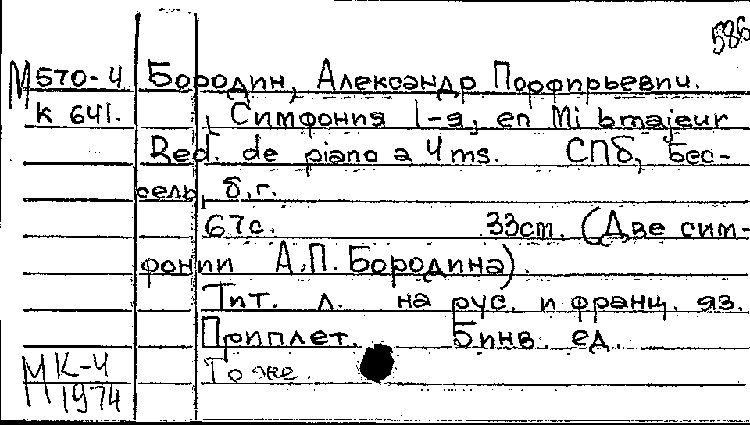 586
М570-4 Бородин, Александр Порфирьевич.
к 641. , Симфония 1-я, en Mi bmajeur
Red. de piano a 4 ms. СПб, Бес-
сель, б.г.
67с. 33ст. (Две сим-
фонии А.П. Бородина).
Тит. л. на рус. и франц. яз.
Приплет. 5 инв. ед.
То же.
МК-4
1974